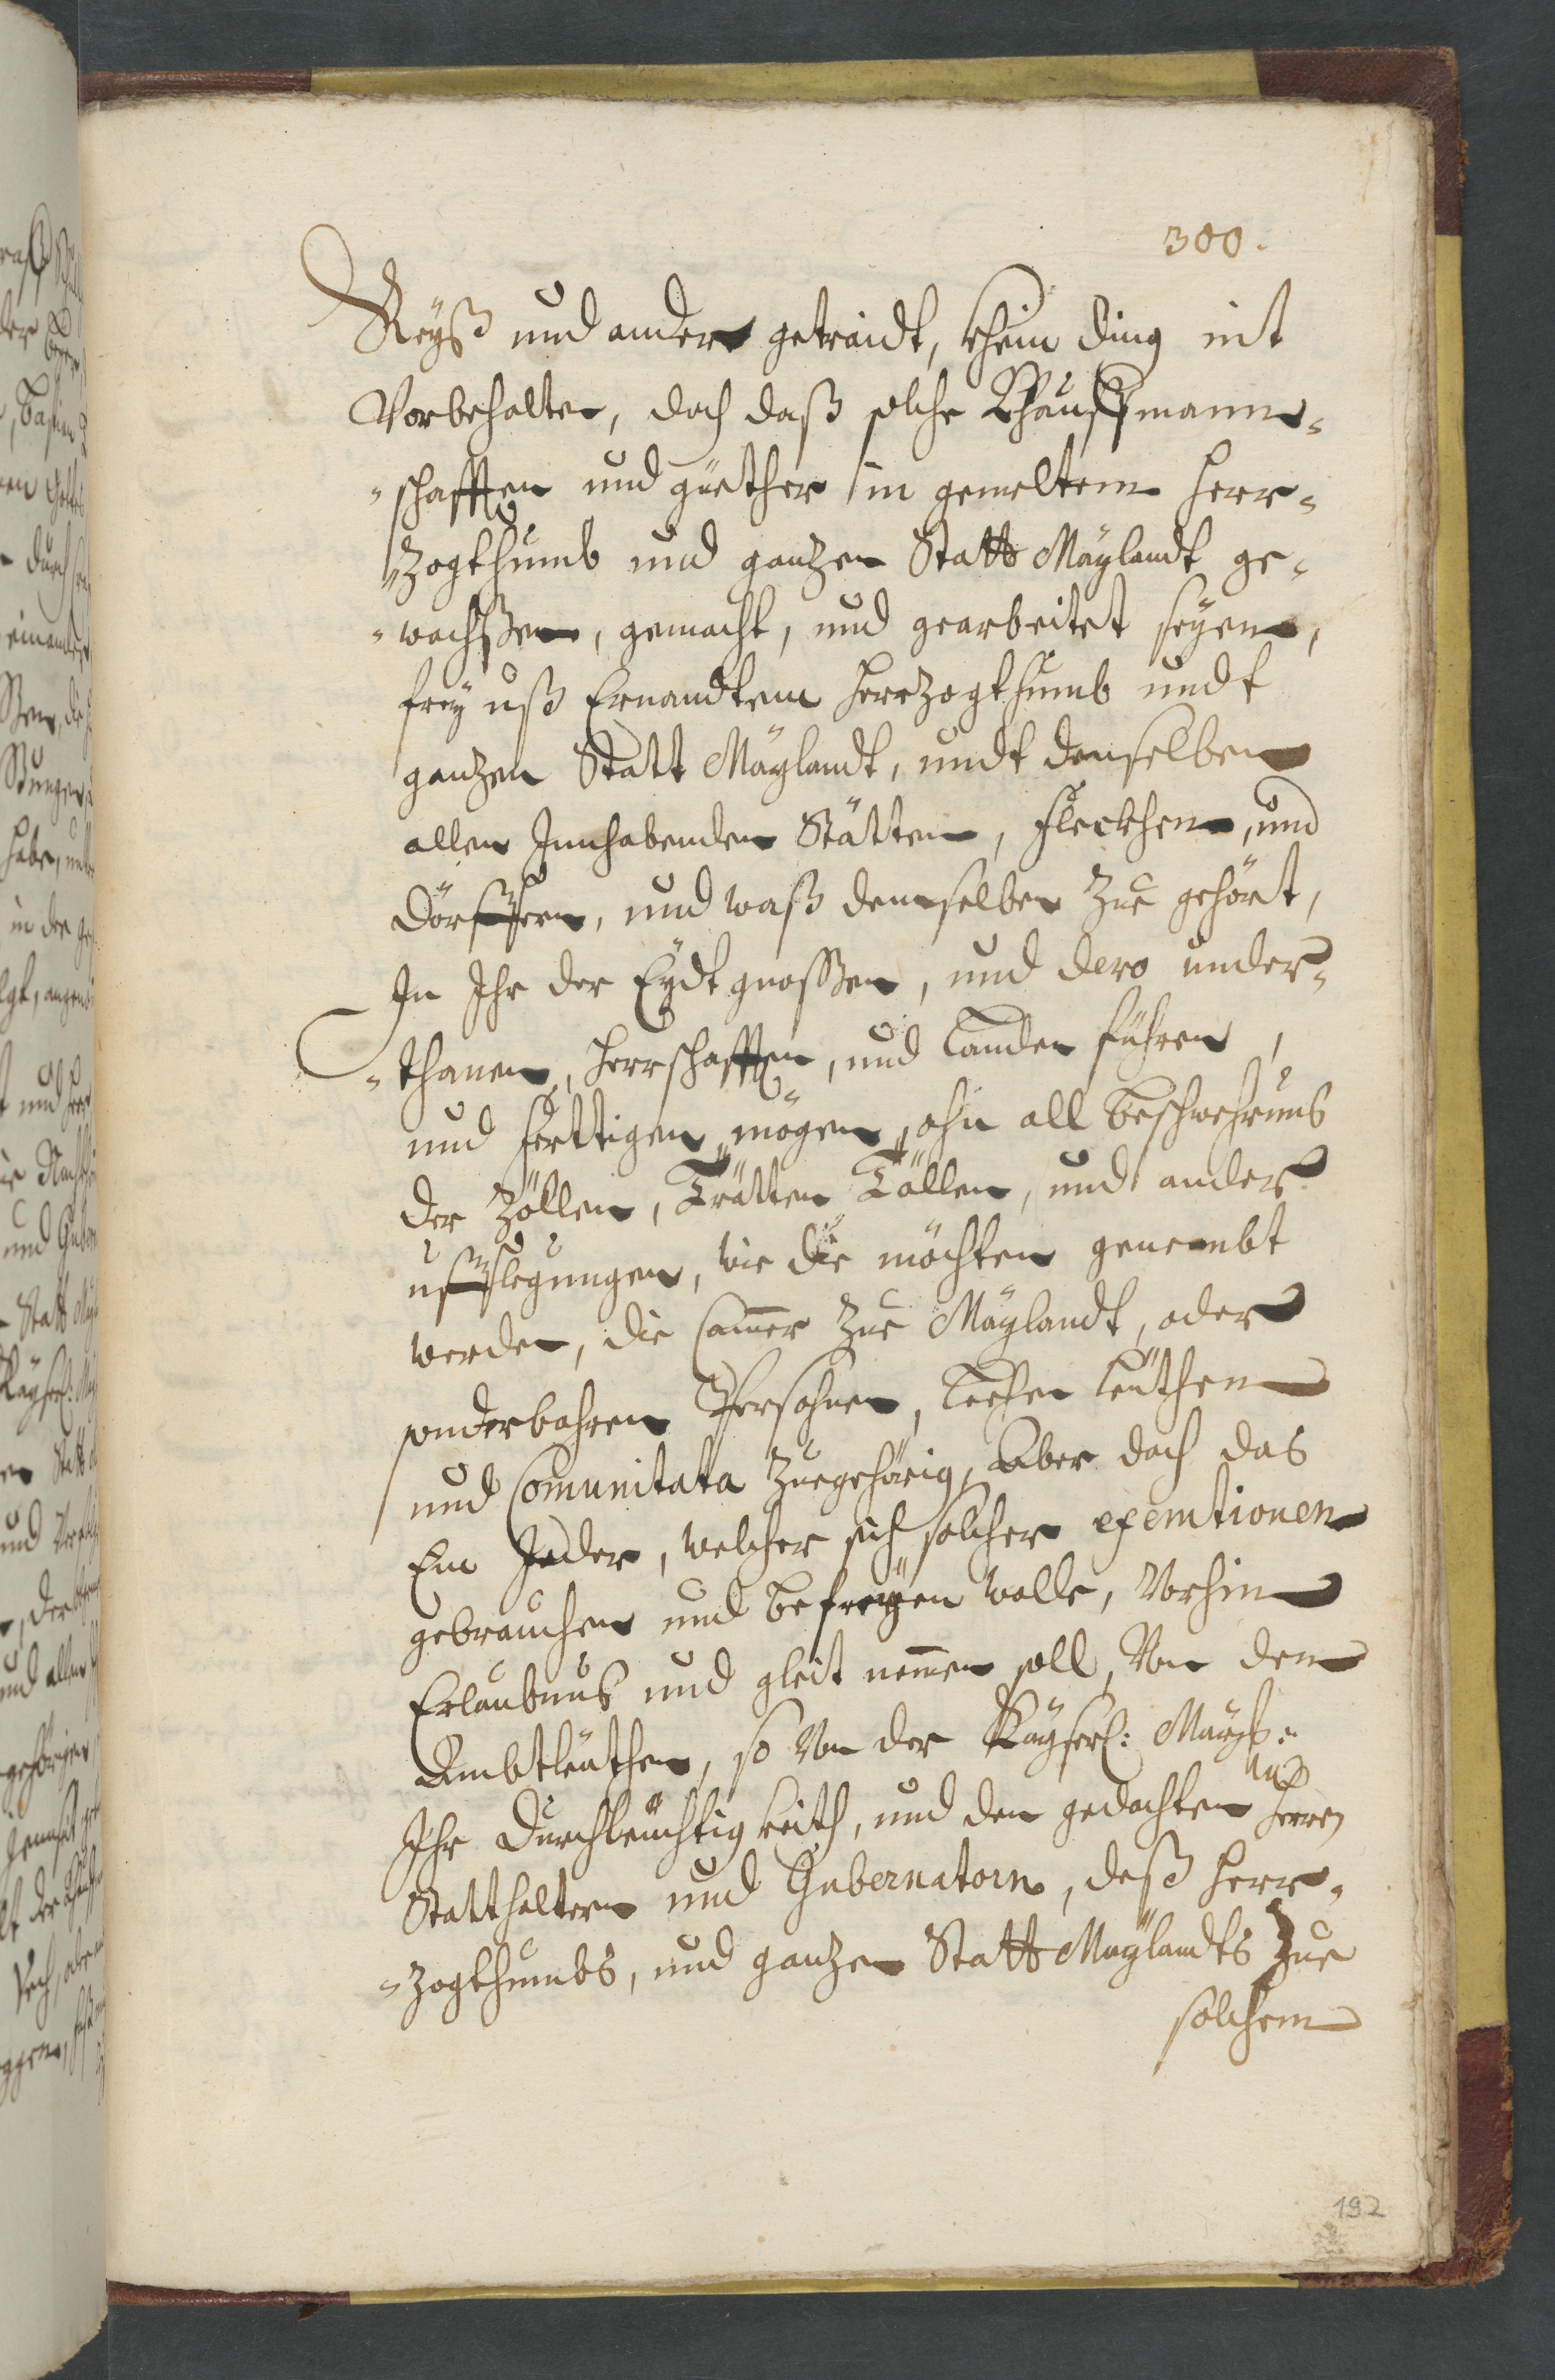 300.
Reyß und anders getraidt, khein ding nit
Vorbehalten, doch daß solche Khauffmann-
-schafften und güether in gemeltem Herr-
-zogthumb und ganzen Statt Maÿlandt ge-
-wachßen, gemacht, und gearbeitet seÿen,
freÿ uß Ernandtem Herrzogthumb undt
ganzen Statt Maÿlandt, undt denselben
allen Innhabenden Stätten, Fleckhen, und
Dörfferen, und waß demselben Zue gehört,
In Ihr der Eydtgnossen, und dero under-
-thanen, Herrschafften, und Landen führen,
und ferttigen mögen, ohn all beschwehrnus
der Zöllen, Trätten Zöllen, und anders
ufflegungen, wie die möchten genembt
werden, die Camer Zue Maÿlandt, oder
sonderbahren Persohnen, Leehen Leüthen
und Comunitata Zuegehörig, Aber doch das
Ein Jeder, welcher sich solcher exemtionen
gebrauchen und befreÿen wolle, Vorhin
Erlaubnus und gleit nemen soll, Von den
Ambtleüthen, so Von der Kaÿserl: Maÿst:
Ihr Durchleüchtigkeith, und den gedachten Herren
Statthaltern und Gubernatorn, deß Herr-
-zogthumbs, und ganzen Statt Maÿlandts Zue
solchem
192